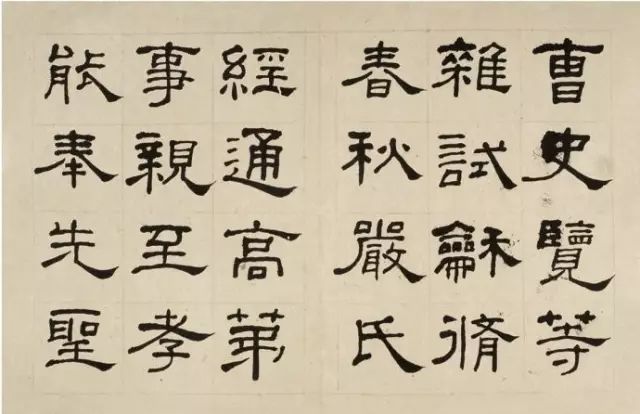 曺史覽等
雜試龢脩
春秋嚴氏
經通高苐
事親至孝
能奉先聖